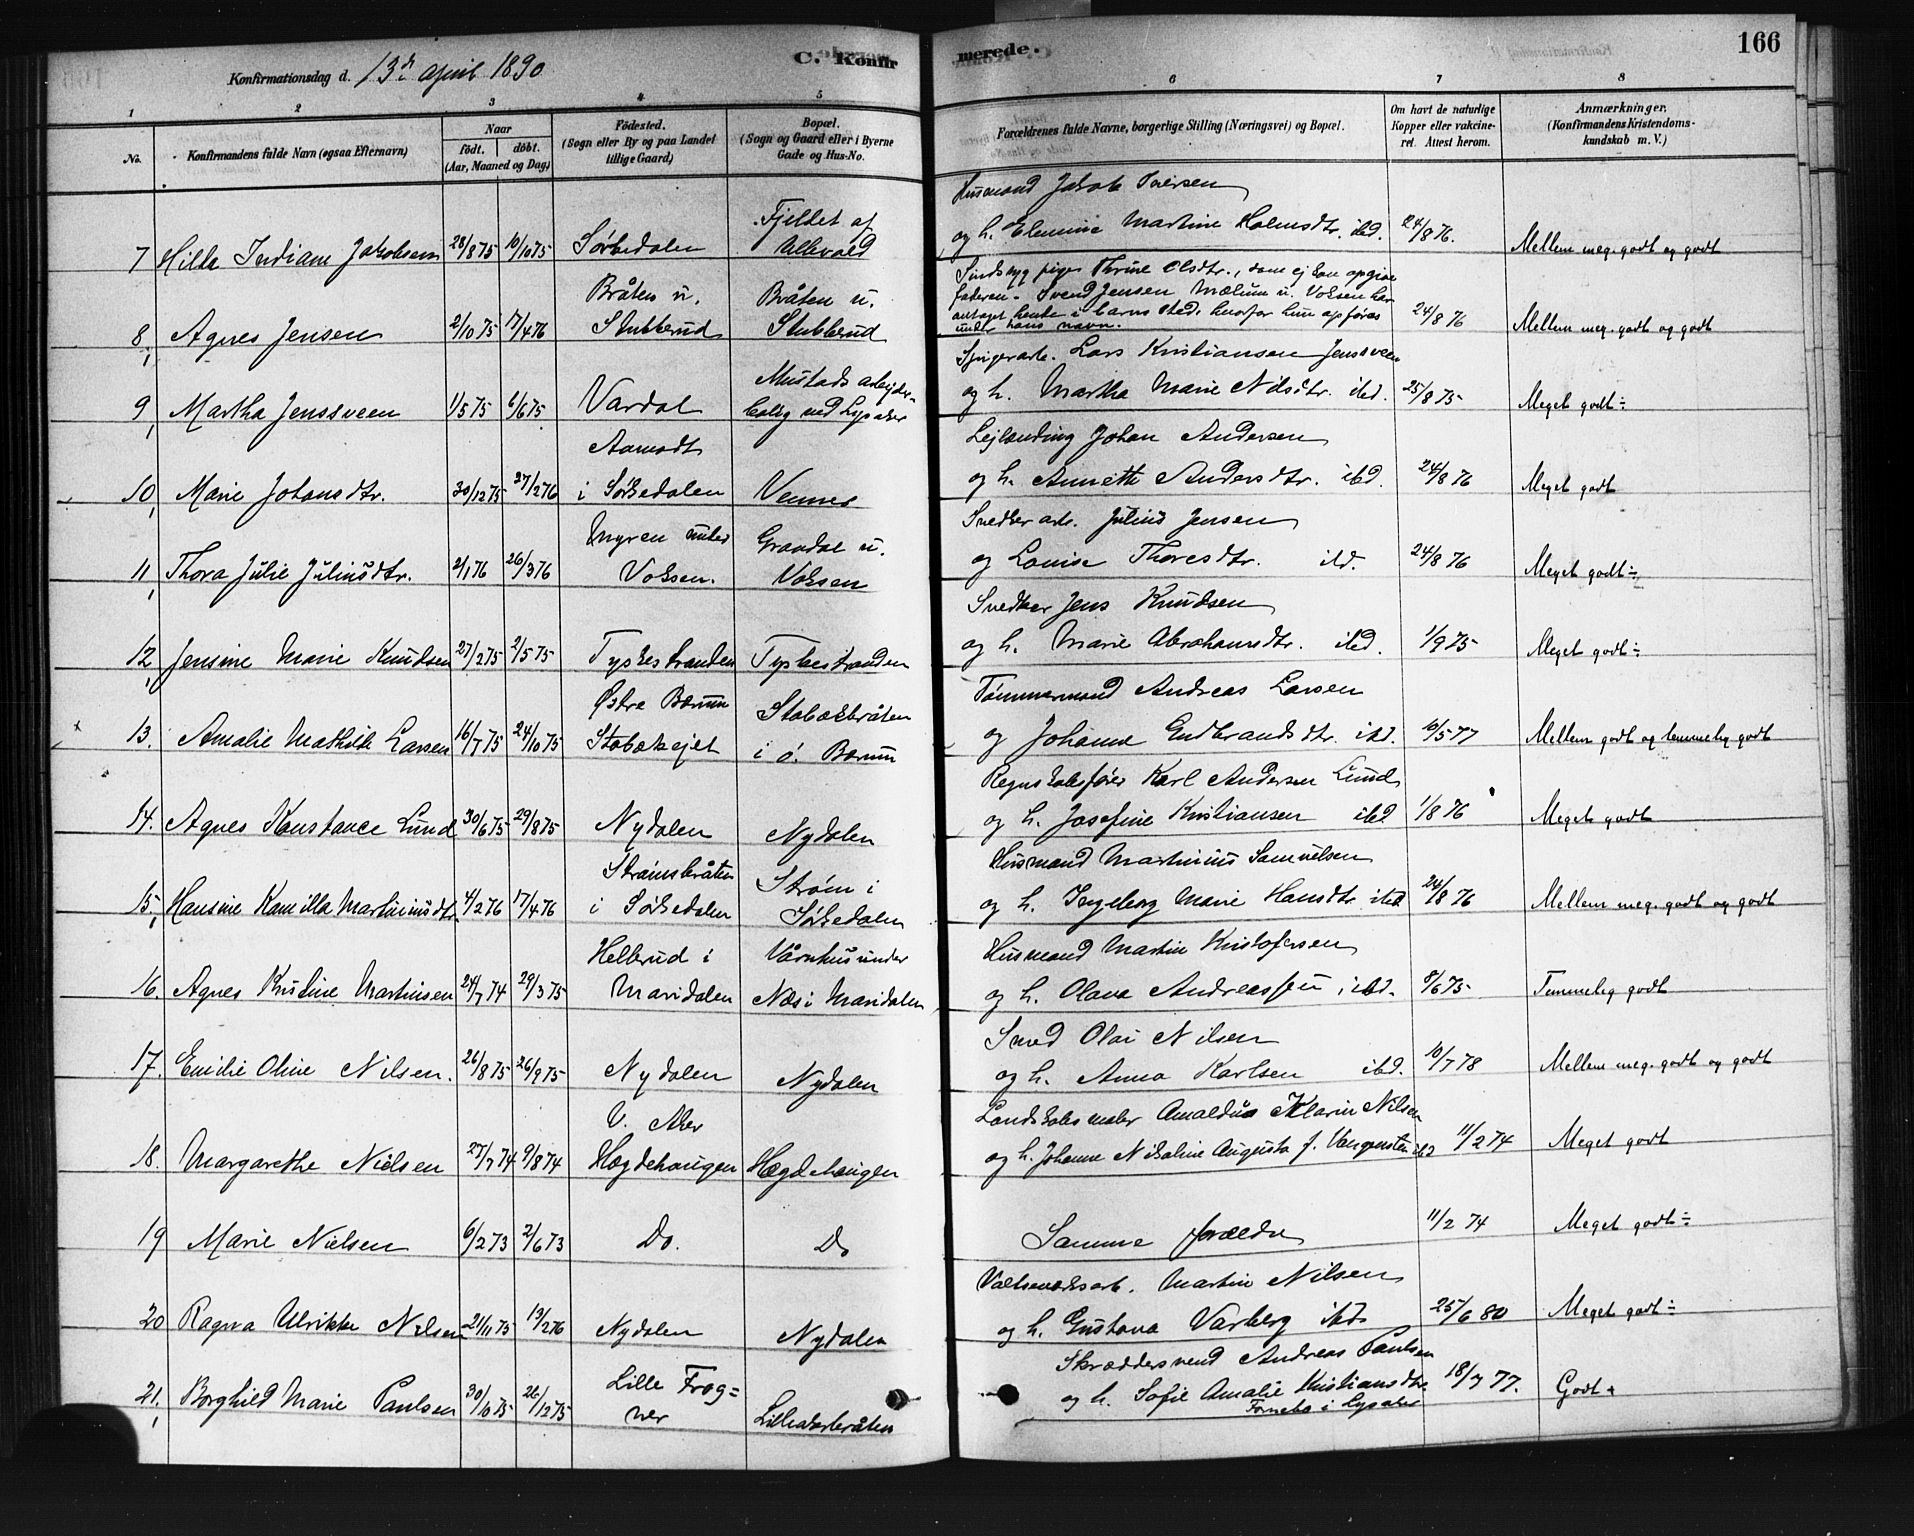 Konfirmationsdag d. 13de april 1890
C. Konfir
merede.
166
1 2 3 4 5 6 7 8
No.
Konfirmandens fulde Navn (ogsaa Efternavn)
Naar
födt. döbt.
(Aar, Maaned og Dag)
Födested.
(Sogn eller By og paa Landet
tillige Gaard)
Bopæl.
(Sogn og Gaard eller i Byerne
Gade og Hus-No.
Forældrenes fulde Navne, borgerlige Stilling (Næringsvei) og Bopæl.
Om havt de naturlige
Kopper eller vakcine-
ret. Attest herom.
Anmærkninger.
(Konfirmandens Kristendoms-
kundskab m. V.)
Fjeldet af Husmand Jakob Iversen
7 Hilda Indiane Jakobsen 28/8 75 10/10 75 Sørkedalen Ullevold og h. Elenine Martine Holmsdtr. ibd. 24/8 76. Mellem meg. godt og godt
Bråten u. Bråten u. Sindssyg pige Thrine Olsdtr., som ej kan opgive
faderen. Svend Jensen Mælum u. Voksen har
antaget hende i barns sted, hvorfor hun opføres
8, Agnes Jensen 2/10 75 17/4 76 Stubberud Stubberud under hans navn. 24/8 76 Mellem meg. godt og godt
Mustads arbejder- Spigerarb. Lars Kristiansen Jenssveen
9, Martha Jenssveen 1/5 75 6/6 75 Vardal bolig ved Lysaker og h. Martha Marie Nilsdtr. ibd. 25/8 75 Meget godt ÷
Aamodt Lejlænding Johan Andersen
10, Marie Johansdtr. 30/12 75 27/2 76 i Sørkedalen Venner og h. Annette Andersdtr. ibd. 24/8 76 Meget godt
Myren under Grandal u. Snedker arb. Julius Jensen
11, Thora Julie Juliusdtr. 2/1 76 26/3 76 Voksen. Voksen og Lovise Thoresdtr. ibd. 24/8 76 Meget godt ÷
Snedker Jens Knudsen
12, Jensine Marie Knudsen 27/2 75 2/5 75 Tyskestranden Tyskestranden og h. Marie Abrahamsdtr. ibd. 1/9 75 Meget godt ÷
Østre Bærum Stabækbråten Tømmermand Andreas Larsen
13. Amalie Mathilde Larsen 16/7 75 24/10 75 Stabækejet i ø. Bærum og Johanne Gudbrandsdtr. ibd. 10/5 77 Mellem godt og temmelig godt
Regnskabsfører Karl Andersen Lund
14. Agnes Konstance Lund 30/6 75 29/8 75 Nydalen Nydalen og h. Josefine Kristiansen ibd 1/8 76 Meget godt
Strømsbråten Strøm i Husmand Martinius Samuelsen
15, Hansine Kamilla Martiniusdtr. 4/2 76 17/4 76 i Sørkedalen Sørkedalen og h. Ingeborg Marie Hansdtr. ibd 24/8 76 Mellem meg. godt og godt
Hellerud i Vårnhus under Husmand Martin Kristofersen
16. Agnes Kristine Martinsen 24/7 74 29/3 75 Maridalen Næs i Maridalen og h. Olava Andreassen ibd. 8/6 75 Temmelig godt
Smed Olai Nilsen
17. Emilie Oline Nilsen. 26/8 75 26/9 75 Nydalen Nydalen og h. Anna Karlsen ibd. 10/7 78 Mellem meg. godt og godt
V. Aker Landskabsmaler Amaldus Klarin Nilsen
18. Margarethe Nielsen 27/7 74 9/8 74 Hægdehaugen Hægdehaugen og h. Johanne Nikoline Augusta f. ibd 11/2 74 Meget godt
19 Marie Nielsen 6/2 73 2/6 73 Do. Do Samme forældre 11/2 74 Meget godt ÷
Valseværksarb. Martin Nilsen
20 Ragna Ulrikke Nilsen 21/11 75 13/2 76 Nydalen Nydalen og h. Gustava Varberg ibd. 25/6 80 Meget godt ÷
Lille Frog= Skræddersvend Andreas Paulsen
21, Borghild Marie Paulsen 30/10 75 26/12 75 ner Lilleakerbråten og h. Sofie Amalie Kristiansdtr. 18/7 77. Godt +
Fornebo i Lysaker